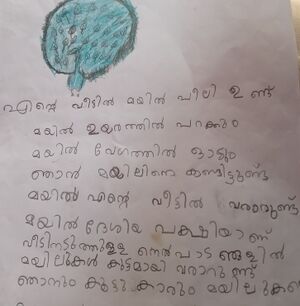 എന്റെ വീട്ടിൽ മയിൽ പീലി ഉണ്ട്
മയിൽ ഉയരത്തിൽ പറക്കും
മയിൽ വേഗത്തിൽ ഓടും
ഞാൻ മയിലിനെ കണ്ടിട്ടുണ്ട്
മയിൽ എന്റെ വീട്ടിൽ വരാറുണ്ട്
മയിൽ ദേശിയ പക്ഷിയാണ്
വീടിനടുത്തുള്ള നെൽപാടങ്ങളിൽ
മയിലുകൾ കൂട്ടമായി വരാറുണ്ട്
ഞാനും കൂട്ടുകാരും മയിലുകളെ